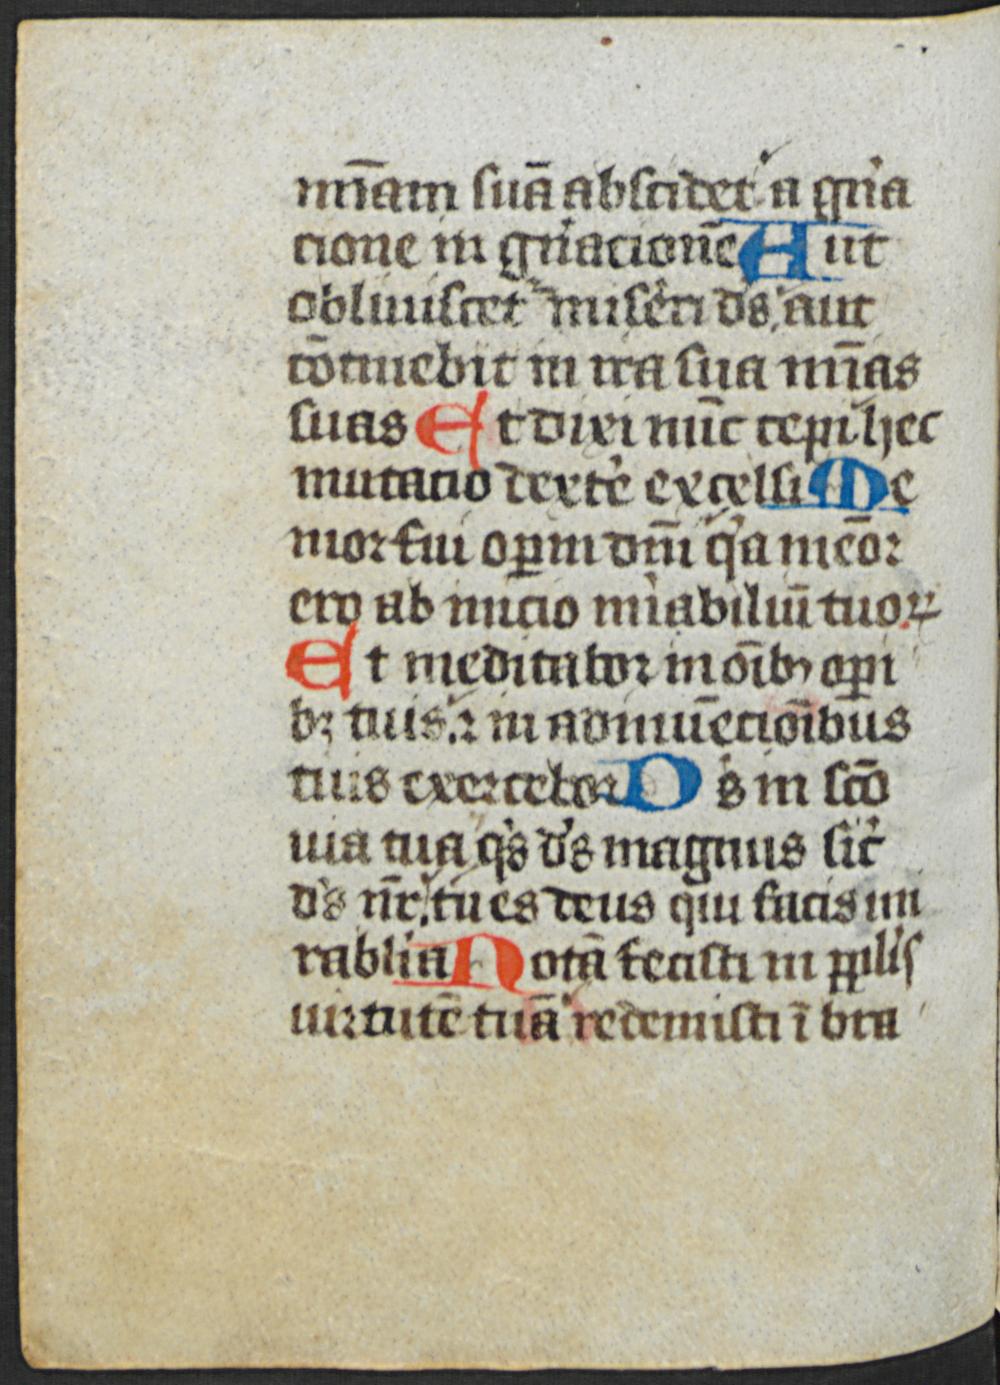 mīam suā abscidet a gn̄a
cione in gn̄acionē Aut
obliuiscet᷑ miserͥi ds aut
cōtinebit in ira sua mīas
suas Et dixi nūc cepi hec
mutacio dextͤe excelsi Me
mor fui oꝑum dn̄i qͥa memōr
ero ab inicio mͥabiliū tuoꝝ
Et meditabor in oīb; oꝑi
bꝫ tuis ⁊ in adinuēcioībus
tuis exercebor Ds in scō
uia tua qͥs ds magnus sic᷑
ds nr̄ tu es deus qui facis mi
rablia Notā fecisti in ppl̄is
uirtutē tuā redemisti ī bra